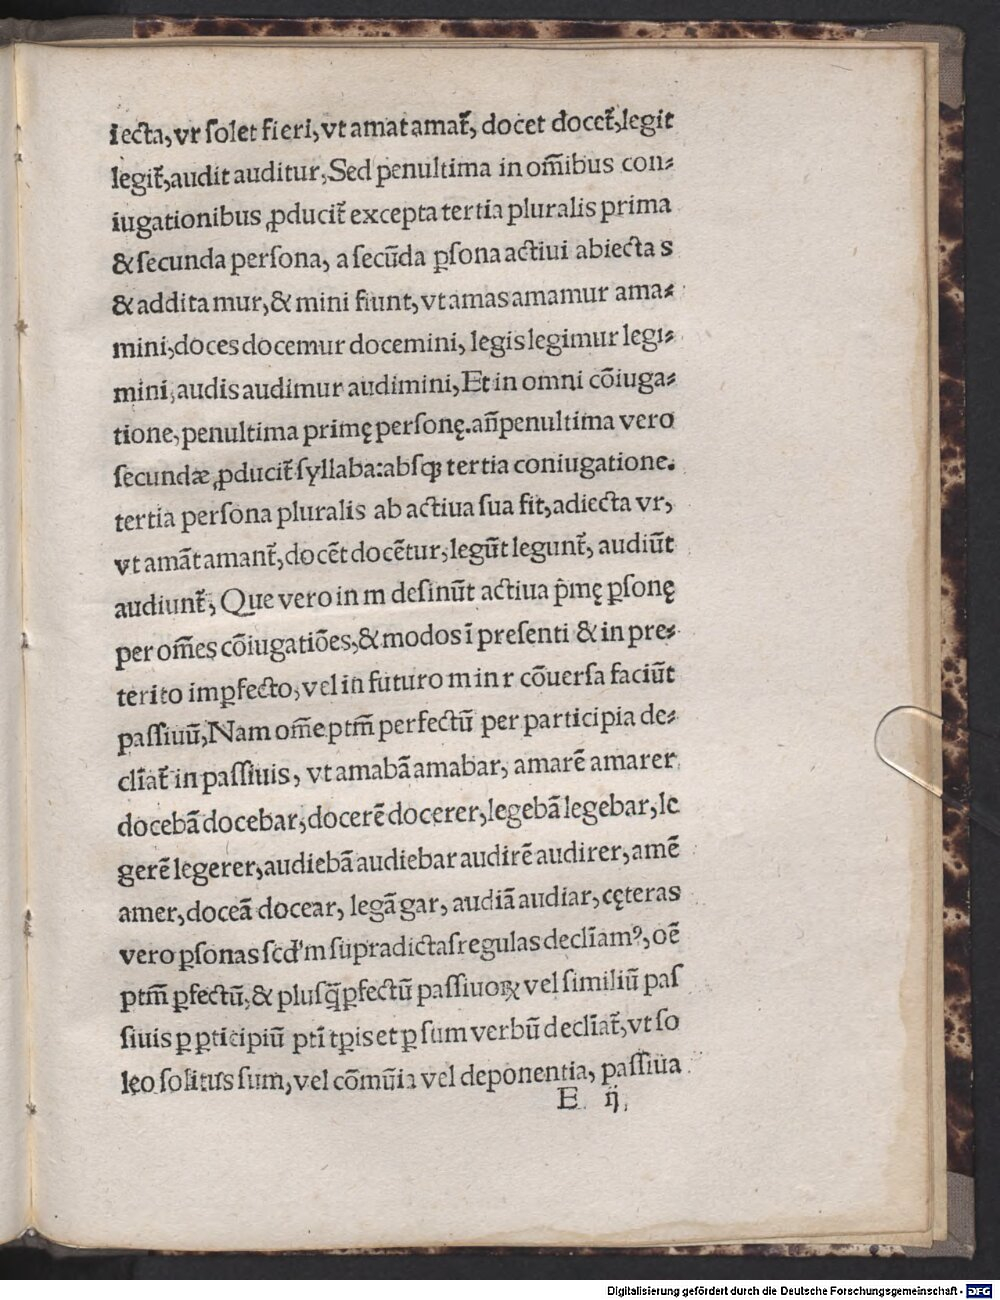 iecta, vr ſolet fieri, vt amat amat᷑, docet docet᷑, legit
legit᷑, audit auditur, Sed penultima in om̄ibus con⸗
iugationibus ꝓducit᷑ excepta tertia pluralis prima
& ſecunda perſona, a ſecūda ꝑſona actiui abiecta s
& addita mur, & mini fiunt, vt amas amamur ama⸗
mini, doces docemur docemini, legis legimur legi⸗
mini, audis audimur audimini, Et in omni cōiuga⸗
tione, penultima primę perſonę. an̄penultima vero
ſecundæ ꝓducit᷑ ſyllaba: abſqꝫ tertia coniugatione.
tertia perſona pluralis ab actiua ſua fit, adiecta vr,
vt amāt amant᷑, docēt docētur, legūt legunt᷑, audiūt
audiunt᷑, Que vero in m deſinūt actiua p̄mę ꝑſonę
per om̄es cōiugatiōes, & modos ī preſenti & in pre⸗
terito imꝑfecto, vel in futuro m in r cōuerſa faciūt
paſſiuū, Nam om̄e ptm̄ perfectū per participia de⸗
clīat᷑ in paſſiuis, vt amabā amabar, amarē amarer
docebā docebar, docerē docerer, legebā legebar, le
gerē legerer, audiebā audiebar audirē audirer, amē
amer, doceā docear, legā gar, audiā audiar, cęteras
vero ꝑſonas ſcd'm ſupradictas regulas declīam⁹, oē
ptm̄ ꝑfectū, & pluſq̄ꝑfectū paſſiuoꝝ vel ſimiliū paſ
ſiuis ꝑ ꝑticipiū ptī tꝑis et ꝑ ſum verbū declīat᷑, vt ſo
leo ſolitus ſum, vel cōmūia vel deponentia, paſſiua
E ij,
Digitalisierung gefördert durch die Deutsche Forschungsgemeinschaft - DFG